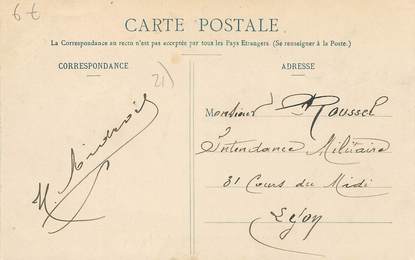 6 €
CARTE POSTALE
La Correspondance au recto n'est pas acceptée par tous les Pays Etrangers. (Se renseigner à la Poste.)
CORRESPONDANCE
ADRESSE
21)
Monsieur Roussel
Intendance Militaire
31 Cours du Midi
Lyon